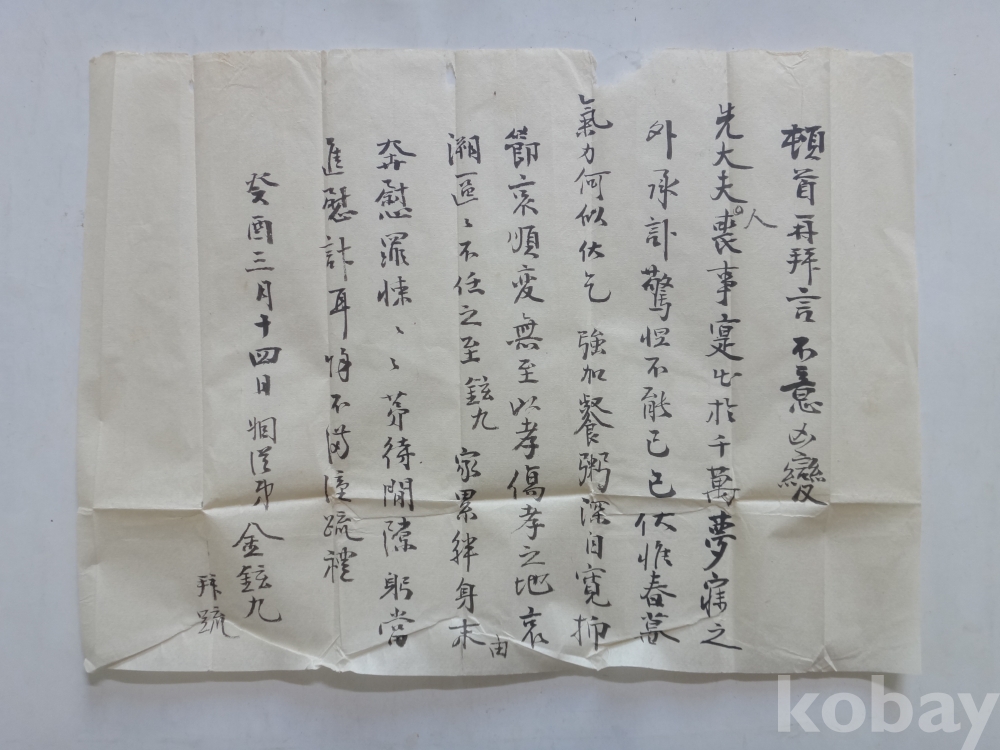 頓首再拜言不意凶變
先大夫人喪事寔出於千萬夢寐之
外承訃驚怛不能已已伏惟春暮
氣力何似伏乞強加餐粥深自寬抑
節哀順変無至以孝傷孝之地哀
溯區〻不任之至鉉九家累絆身末由
奔慰罪悚〻〻第待間隙躬當
進慰計耳餘不備謹疏禮
癸酉三月十四日 金鉉九
拜疏
kobay